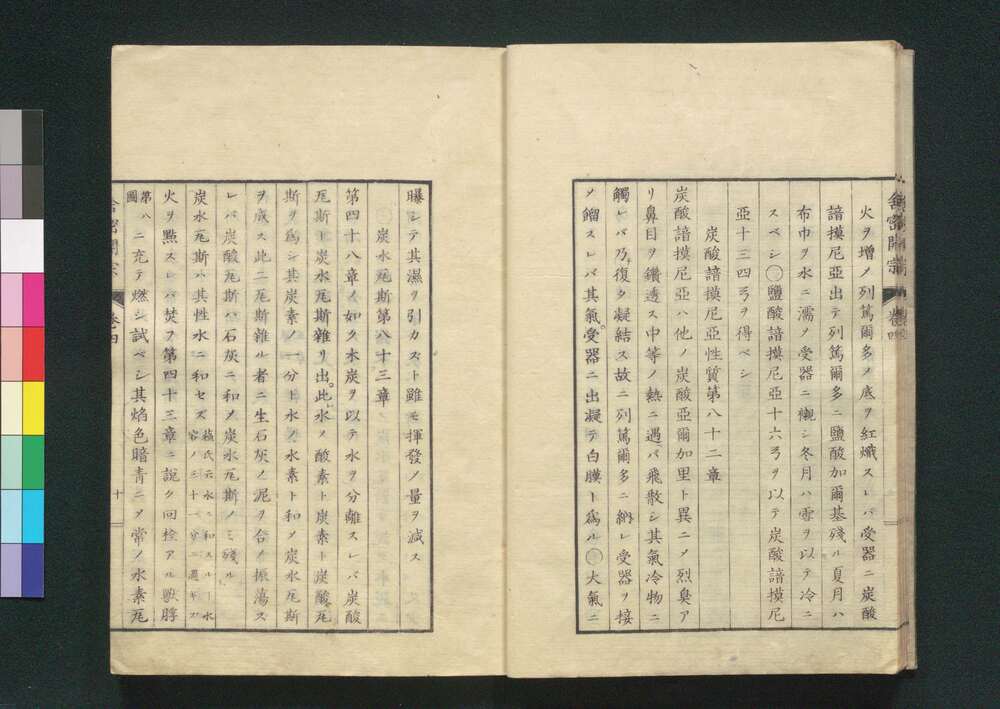 火ヲ增メ列篤爾多ノ底ヲ紅熾スレバ受器ニ炭酸
諳摸尼亞出テ列篤爾多ニ鹽酸加爾基殘ル夏月ハ
布巾ヲ水ニ濡ヲ受器ニ襯シ冬月ハ雪ヲ以テ冷ニ
スベシ○鹽酸諳摸尼亞十六ヲ以テ炭酸諳摸尼
亞十三四ヲ得ベシ
炭酸諳摸尼亞性質第八十二章
炭酸諳摸尼亞ハ他ノ炭酸亞爾加里ト異ニメ烈臭ア
リ鼻目ヲ鑽透ス中等ノ熱ニ遇バ飛散シ其氣冷物ニ
觸レバ乃復タ凝結ス故ニ列篤爾多ニ納レ受器ヲ接
メ餾スレバ其氣受器ニ出凝テ白膜ト爲ル○大氣ニ
舍密開宗 卷四
曝シテ其濕ヲ引カズト雖モ揮發メ量ヲ減ス
炭水瓦斯第八十三章
第四十八章ノ如ク木炭ヲ以テ水ヲ分離スレバ炭酸
瓦斯ト炭水瓦斯雜リ出此水ノ酸素ト炭素ト炭酸瓦
斯ヲ爲シ其炭素ノ一分ト水ノ水素ト和メ炭水瓦斯
ヲ成ス此二瓦斯雜ル者ニ生石灰ノ泥ヲ合メ振蕩ス
レバ炭酸瓦斯ハ石灰ニ和メ炭水瓦斯ノミ殘ル
炭水瓦斯ハ其性水ニ和セズ
氏云水ニ和スルヿ水
容ノ三十一分ニ過ギズ
火ヲ點スレバ焚ヲ第四十三章ニ說ク回栓アル獸脬
第八
圖
ニ充テ燃シ試ベシ其焰色暗青ニメ常ノ水素瓦
舍密開宗 卷四 十